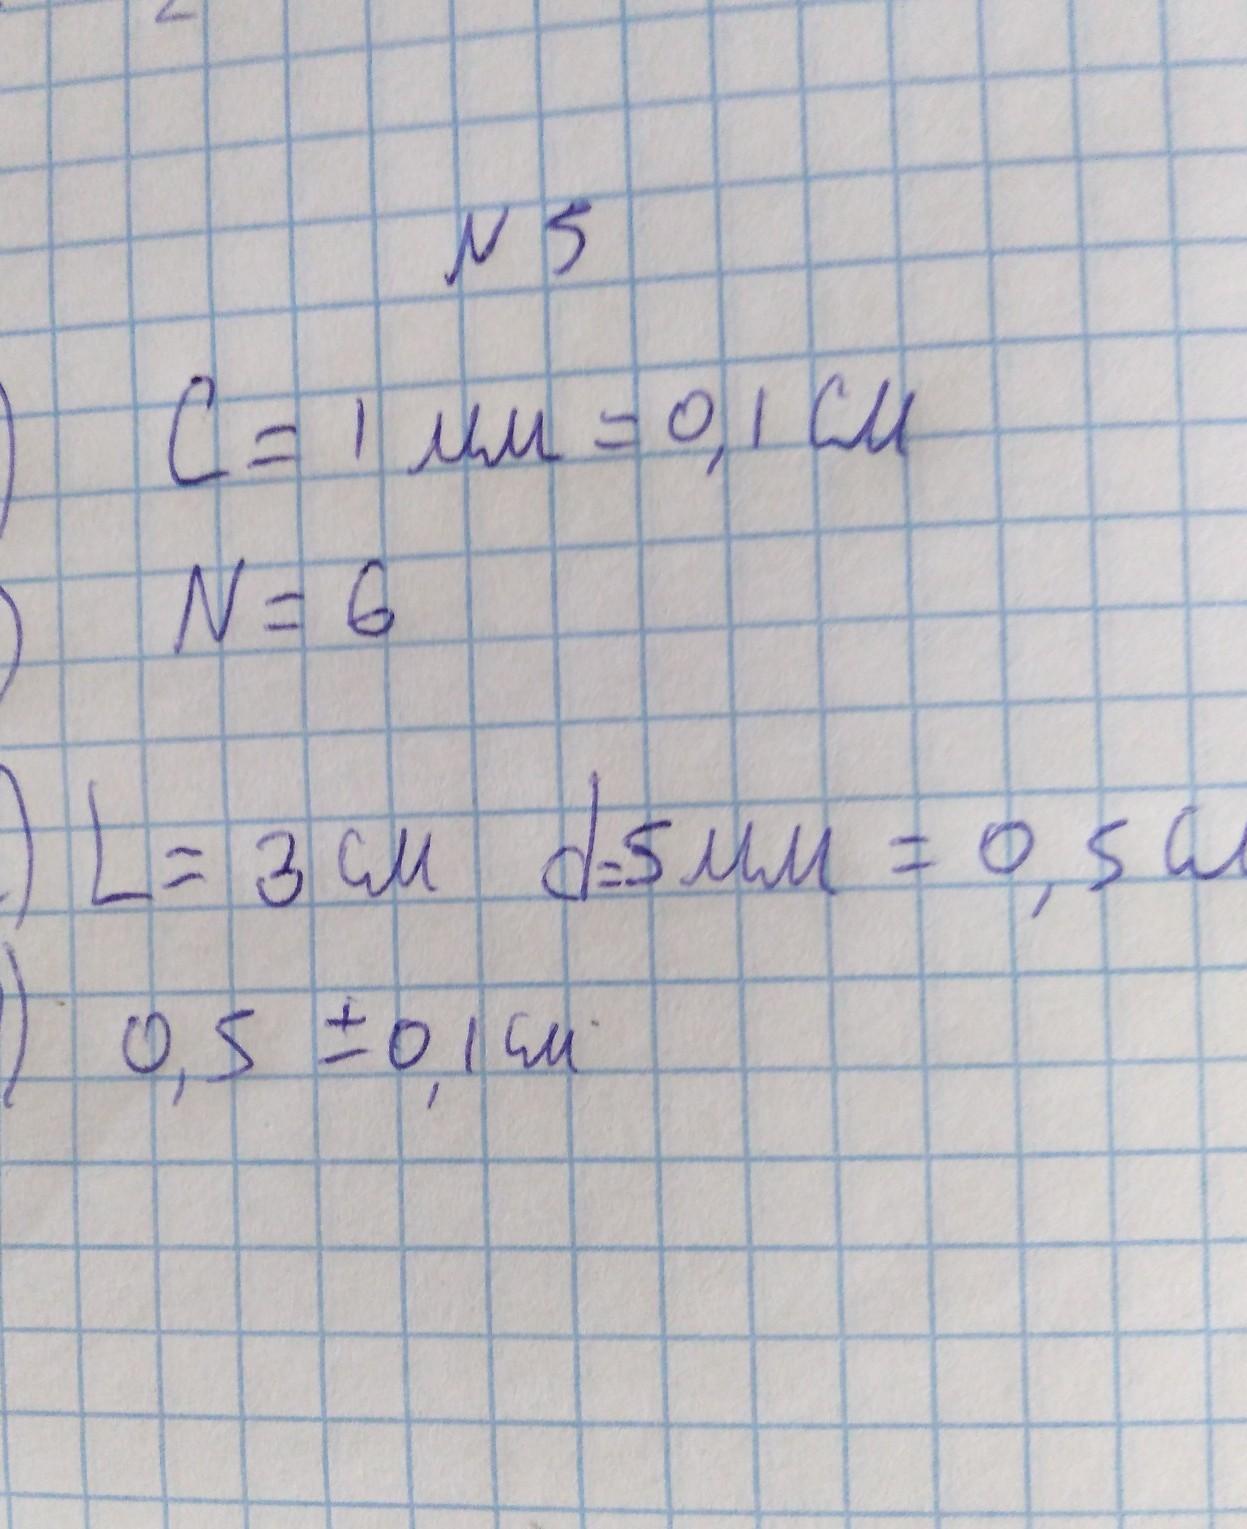 N 5
) C = 1 мм = 0,1 см
) N = 6
) L = 3 см d=5 мм = 0,5 см
) 0,5 ± 0,1 см